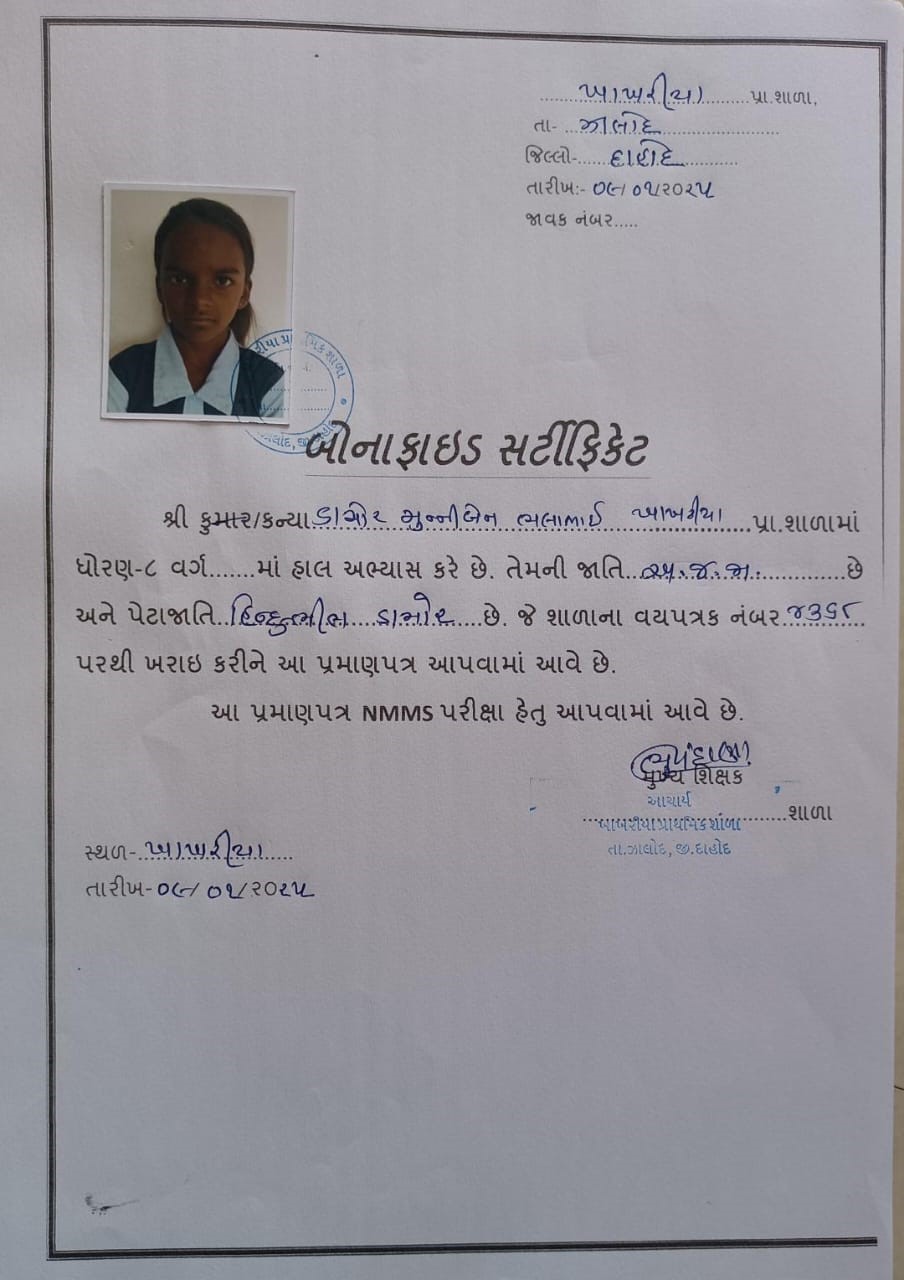 ખાખરીયા પ્રા.શાળા,
તા- ઝાલોદ
જિલ્લો- દાહોદ
તારીખ:- ૦૯/૦૧/૨૦૨૫
જાવક નંબર.....
બોનાફાઇડ સર્ટીફિકેટ
શ્રી કુમાર/કન્યા ડામોર મુન્નીબેન ભલાભાઈ ખાખરીયા પ્રા.શાળામાં
ધોરણ-૮ વર્ગ.......માં હાલ અભ્યાસ કરે છે. તેમની જાતિ અ.જ.જા. છે
અને પેટાજાતિ હિન્દુભીલ ડામોર છે. જે શાળાના વયપત્રક નંબર ૪૩૬૮
પરથી ખરાઇ કરીને આ પ્રમાણપત્ર આપવામાં આવે છે.
આ પ્રમાણપત્ર NMMS પરીક્ષા હેતુ આપવામાં આવે છે.
મુખ્ય શિક્ષક
આચાર્ય
ખાખરીયા પ્રાથમિક શાળા શાળા
તા.ઝાલોદ, જી.દાહોદ
સ્થળ- ખાખરીયા
તારીખ- ૦૯/૦૧/૨૦૨૫